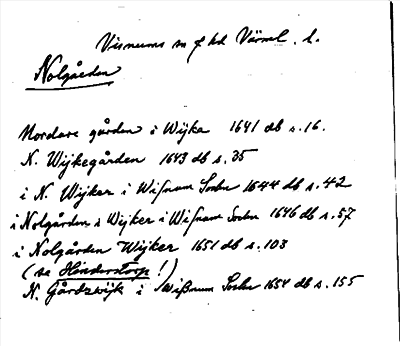 Visnums sn f hd Värml. l.
Nolgården
Nordare gården i Wijka 1641 db s. 16.
N. Wijkegården 1643 db s. 35
i N. Wijker i Wisnum Sochn 1644 db s. 42
i Nolgården i Wijker i Wisnum Sochn 1646 db s. 57
i Nolgården Wijker 1651 db s. 103
(se Hinderstorp!)
N. Gårdzwijk i Wißnum Sochn 1654 db s. 155